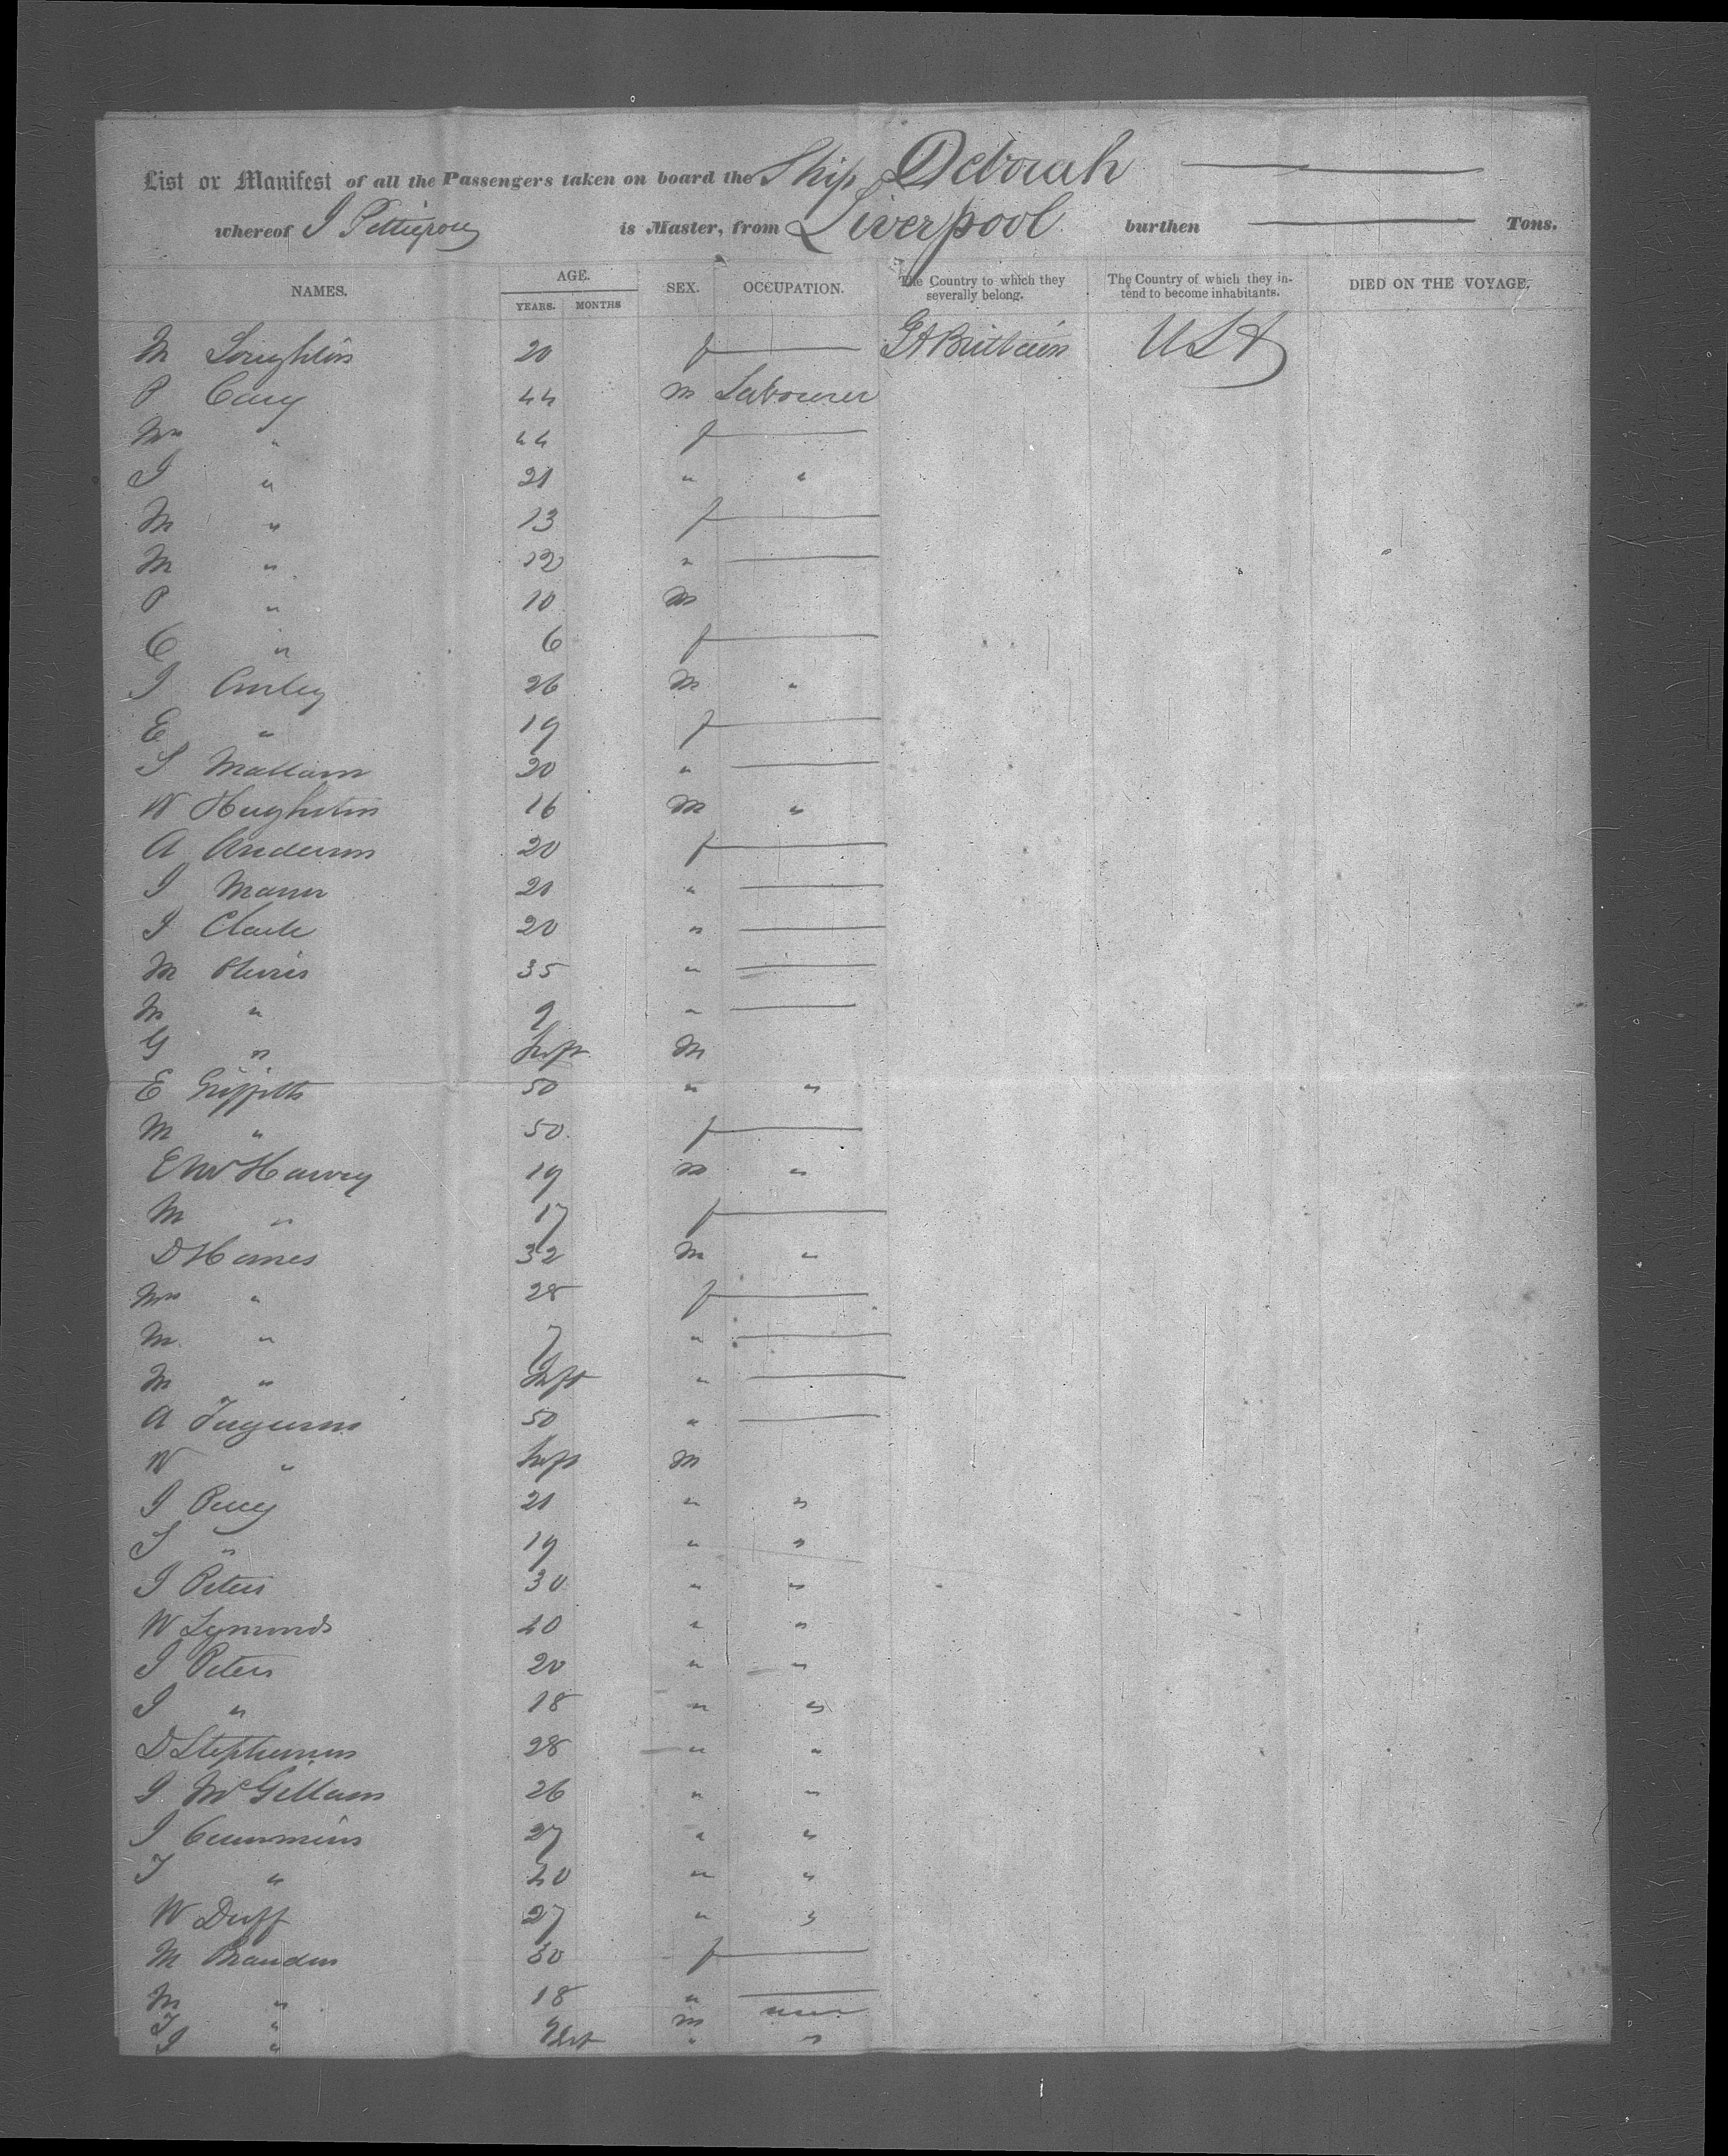 List or Manifest of all the Passengers taken on board the Ship Deborah
whereof J is Master, from Liverpool burthen Tons.
NAMES. AGE. YEARS. MONTHS SEX. OCCUPATION. The Country to which they severally belong. The Country of which they intend to become inhabitants. DIED ON THE VOYAGE.
M Loughlin 20 f Gt Brittain USA
P Cary 44 m Labourer
Mrs " 44 f
J " 21 " "
M " 13 f
M " 12 "
P " 10 M
C " 6 f
J 26 M "
E " 19 f
S Mallam 20 "
W Hughston 16 M "
A Anderson 20 f
J 20 "
J Clark 20 "
M 35 "
M " 9 "
G " Inft M
E Griffiths 50 " "
M " 50 f
E Harvey 19 m "
M " 17 f
D Homes 32 M "
Mrs " 28 f
M " 7 "
M " Inft "
A Ferguson 50 "
W " Inft M
J Percy 21 " "
S " 19 " "
J Peters 30 " "
W Symonds 40 " "
J Peters 20 " "
J " 18 " "
D Stephenson 28 " "
J McGillam 26 " "
J Cummins 27 " "
T " 40 " "
W Duff 27 " "
M Brandon 30 f
M " 18 "
T " 9 m
J " Inft " "